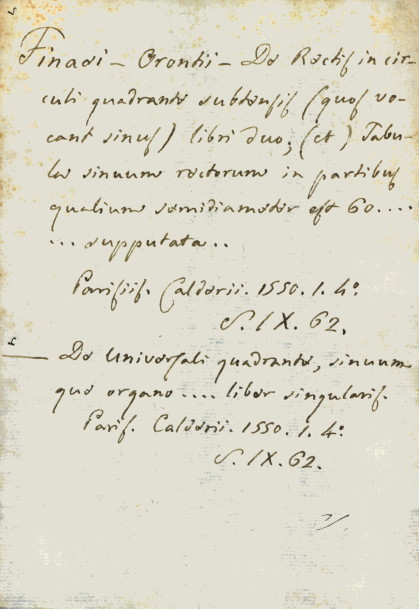 Finaei - Orontii - De Rectis in cir-
culi quadrante subtensis (quos vo-
cant sinus) libri duo, (et) Tabu-
la sinuum rectorum in partibus
qualium semidiameter est 60....
... supputata..
Parisiis. Calderii. 1550. 1. 4º.
S. IX. 62.
— De Universali quadrante, sinuum
que organo.... liber singularis.
Paris. Calderii. 1550. 1. 4º.
S. IX. 62.